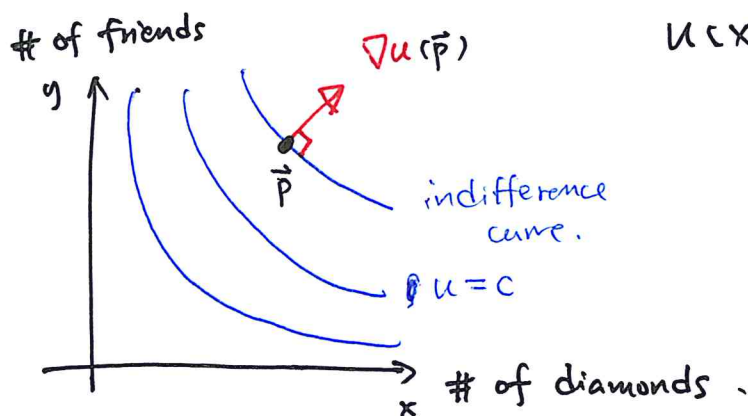 # of friends
∇u(p⃗)
u(x
y
p⃗
indifference
curve.
u = c
x
# of diamonds.